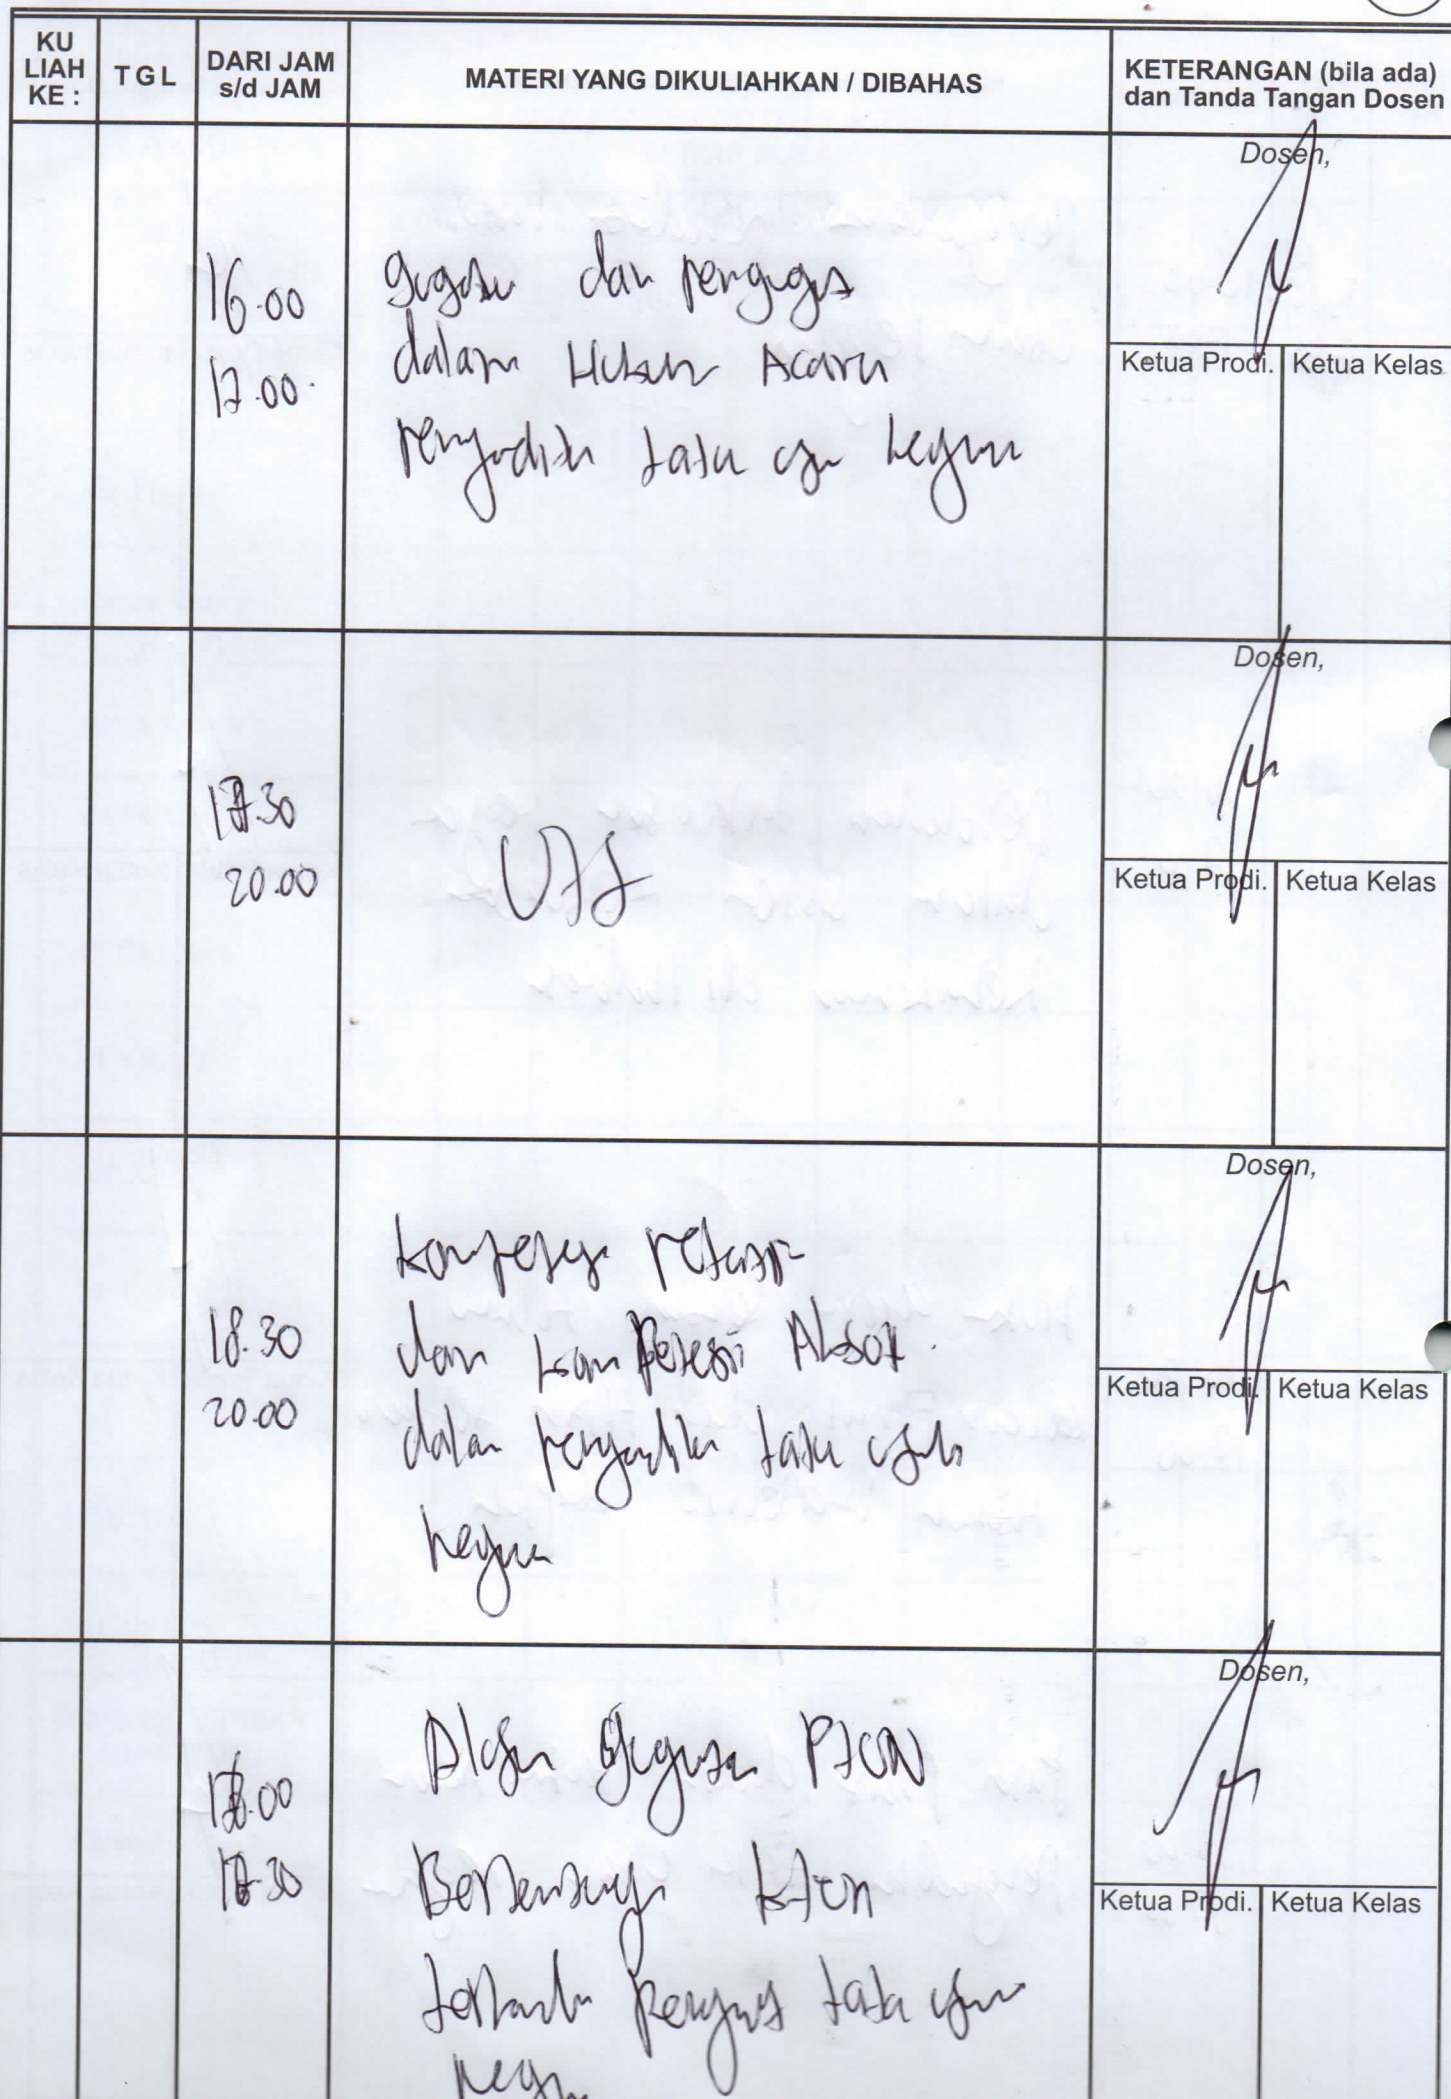 KU LIAH KE :
TGL
DARI JAM s/d JAM
MATERI YANG DIKULIAHKAN / DIBAHAS
KETERANGAN (bila ada) dan Tanda Tangan Dosen
16.00
17.00.
gugatan dan penggugat
dalam Hukum Acara
pengadilan tata usaha negara
Dosen,
Ketua Prodi.
Ketua Kelas
20.00
UTS
Dosen,
Ketua Prodi.
Ketua Kelas
18.30
20.00
kompetensi relatif
dan kompetensi Absolut.
dalam pengadilan tata usaha
negara
Dosen,
Ketua Prodi.
Ketua Kelas
Alasan gugatan PTUN
KTUN
tata usaha
Dosen,
Ketua Prodi.
Ketua Kelas